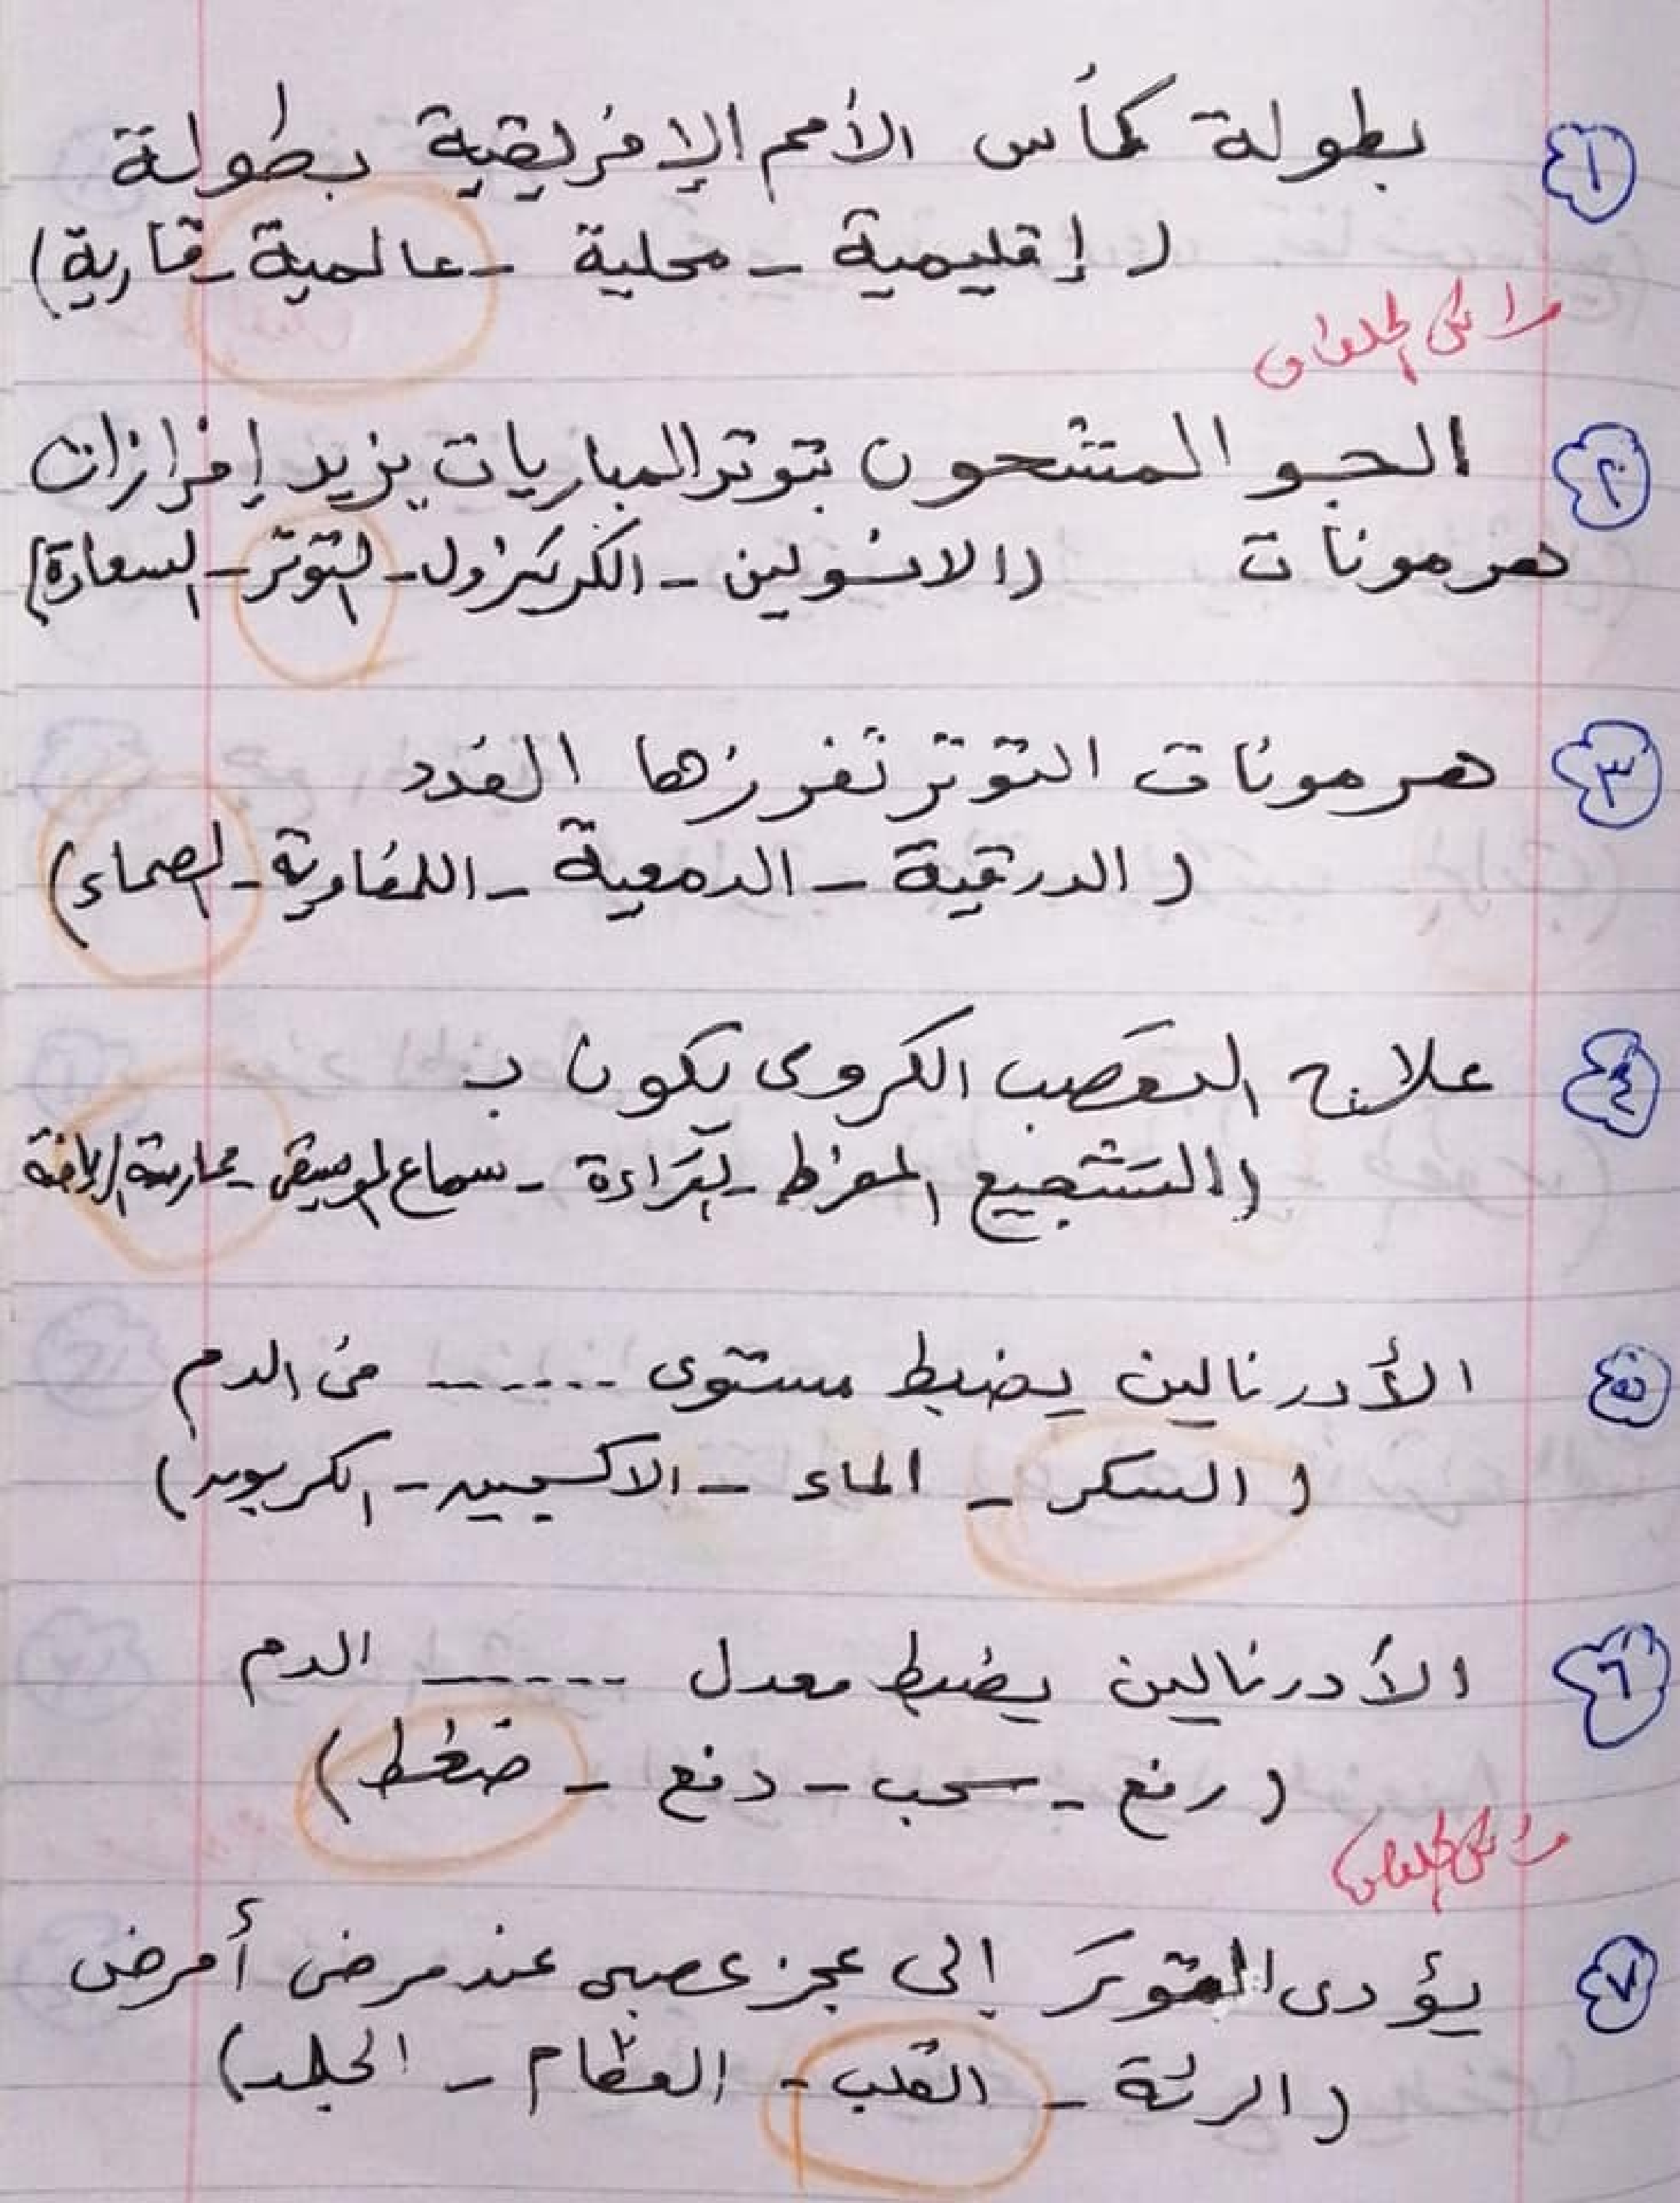 ١ بطولة كأس الأمم الإفريقية بطولة
( إقليمية - محلية - عالمية - قارية )
٢ الجو المشحون بتوتر المباريات يزيد إفرازات
هرمونات ( الانسولين - الكرتيزول - التوتر - السعادة )
٣ هرمونات التوتر تفرزها الغدد
( الدرقية - الدمعية - اللمفاوية - الصماء )
٤ علاج التعصب الكروى يكون بـ
( التشجيع المفرط - القراءة - سماع الموسيقى - ممارسة الرياضة
٥ الأدرنالين يضبط مستوى ...... فى الدم
( السكر - الماء - الاكسيجين - الكربون )
٦ الأدرنالين يضبط معدل ...... الدم
( رفع - سحب - دفع - ضغط )
٧ يؤدى التوتر إلى عجز عصبى عند مرضى أمرض
( الرئة - القلب - العظام - الجلد )